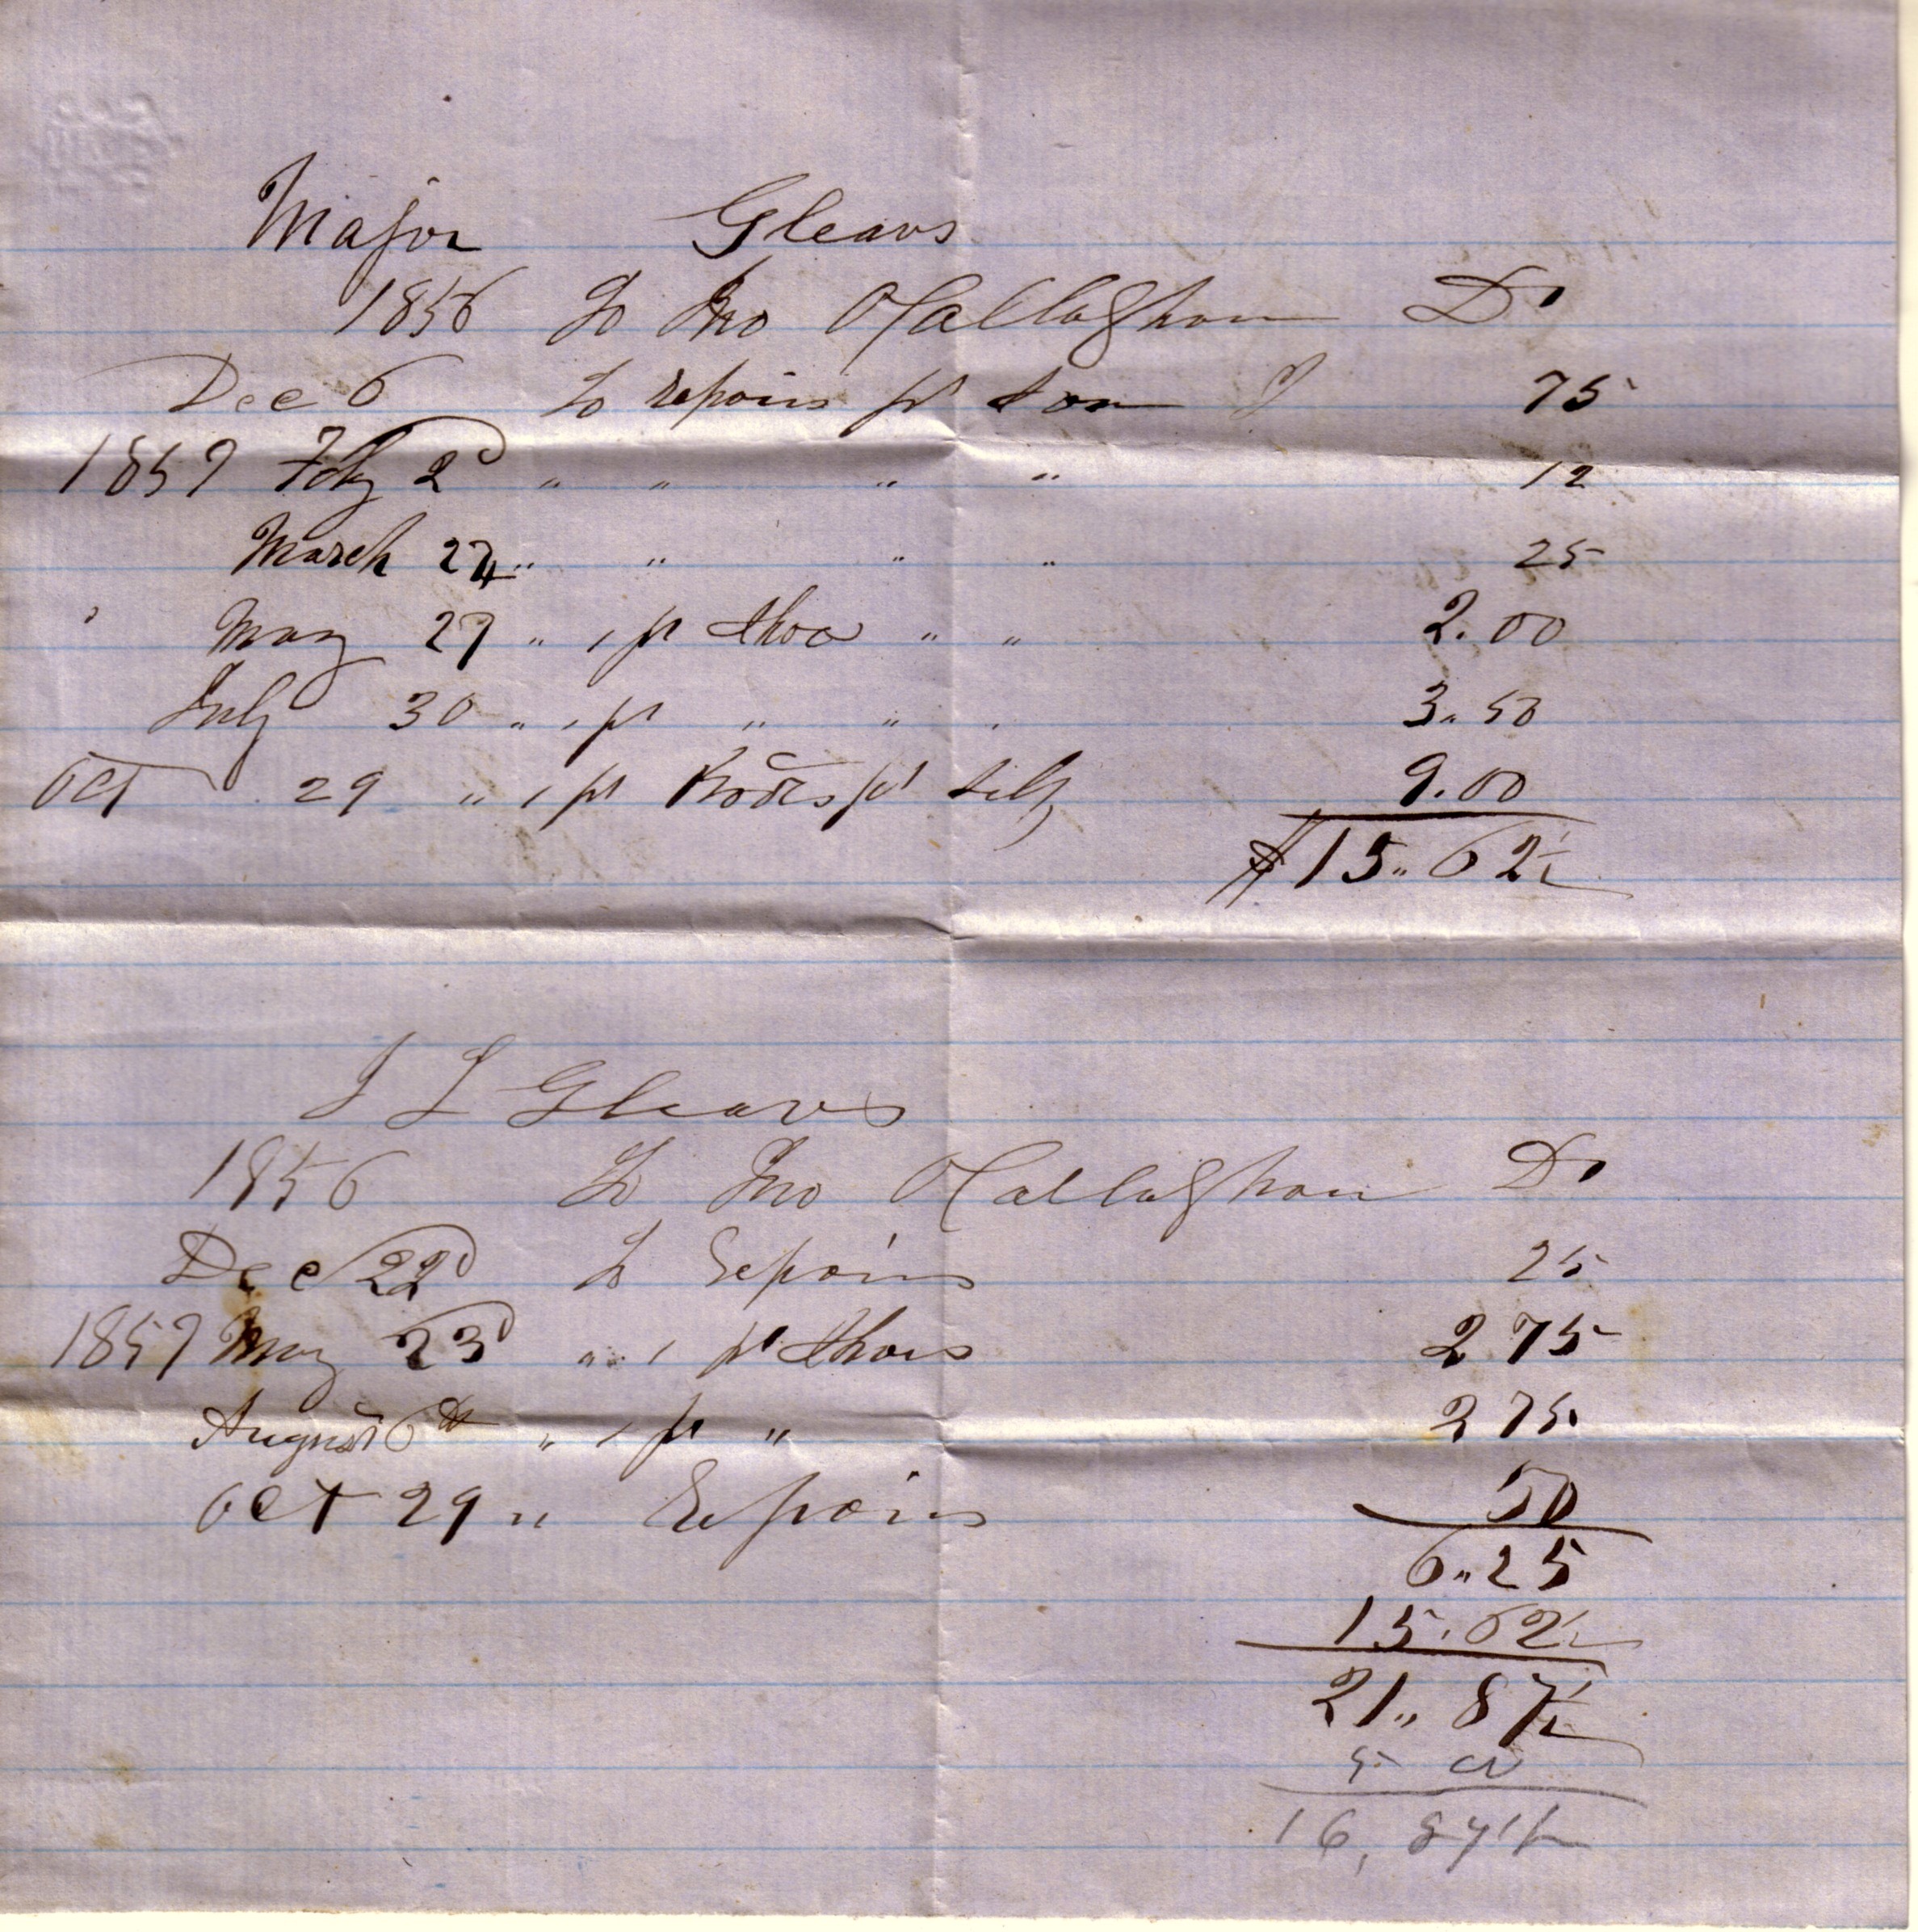 Major Gleavs
1856 To Jno O'Callaghan Dr
Dec 6 To repairs pr son 75
1857 Feby 2d " " " " 12
March 24 " " " " 25
May 27 " 1 pr shoes " " 2.00
July 30 " 1 pr " " " 3.50
Oct 29 " 1 pr Boots pr self 9.00
$15.62½
J L Gleavs
1856 To Jno O'Callaghan Dr
Dec 22d To Repairs 25
1857 May 23d " 1 pr shoes 2 75
August 6th " 1 pr " 2 75
Oct 29 " Repairs 50
6.25
15.62½
21.87½
5 Cr
16,87½